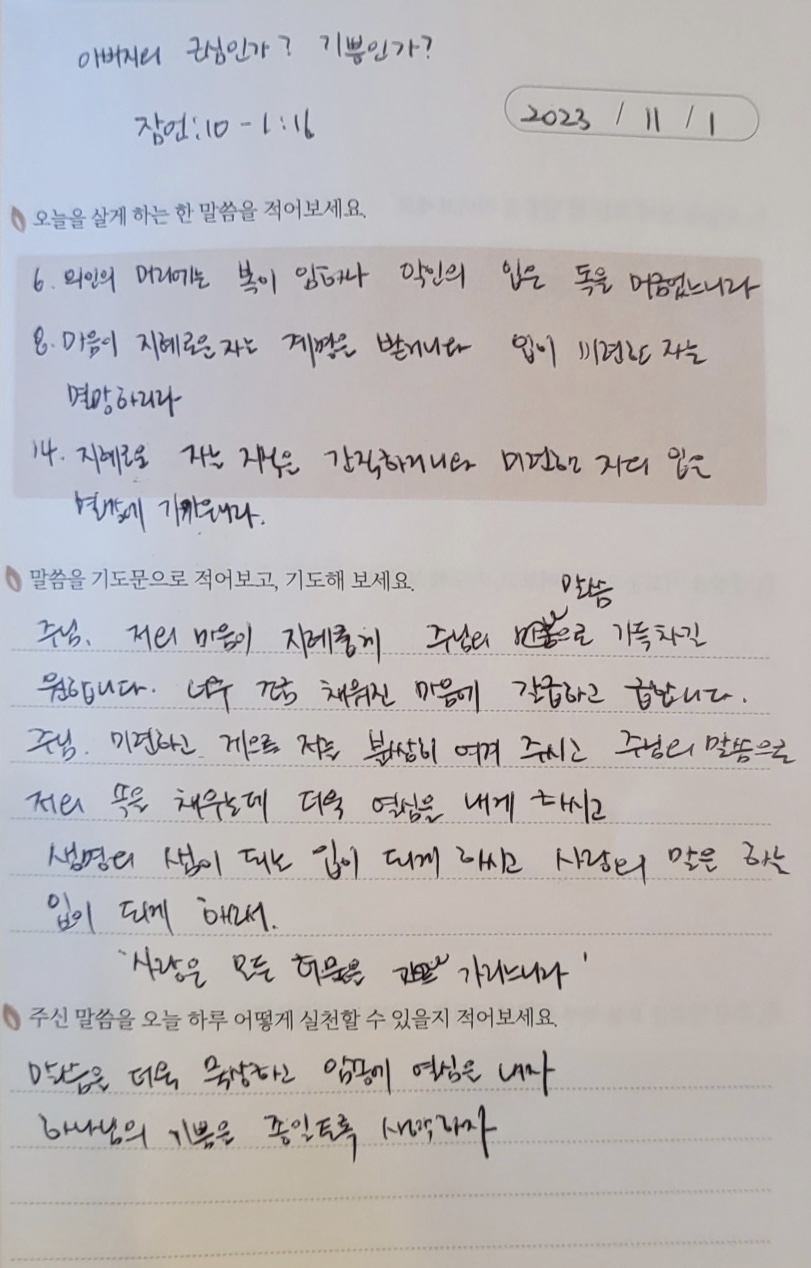 아버지의 근심인가? 기쁨인가?
잠언:10 - 1:16
2023 / 11 / 1
오늘을 살게 하는 한 말씀을 적어보세요.
6. 의인의 머리에는 복이 임하나 악인의 입은 독을 머금었느니라
8. 마음이 지혜로운 자는 계명을 받거니와 입이 미련한 자는
멸망하리라
14. 지혜로운 자는 지식을 간직하거니와 미련한 자의 입은
멸망에 가까우니라.
말씀을 기도문으로 적어보고, 기도해 보세요.
말씀
주님. 저의 마음이 지혜롭게 주님의 으로 가득차길
원합니다. 너무 채워진 마음에 갈급하고 급합니다.
주님. 미련하고 게으른 저를 불쌍히 여겨 주시고 주님의 말씀으로
저의 뜻을 채우는데 더욱 열심을 내게 하시고
생명의 샘이 되는 입이 되게 하시고 사랑의 말을 하는
입이 되게 하소서.
'사랑은 모든 허물을 가리느니라'
주신 말씀을 오늘 하루 어떻게 실천할 수 있을지 적어보세요.
말씀을 더욱 묵상하고 암송에 열심을 내자
하나님의 기쁨을 종일토록 생각하자